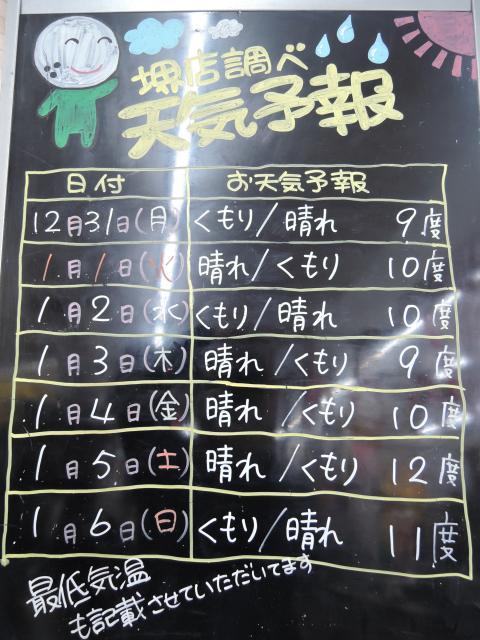 堺店調べ
天気予報
日付 お天気予報
12月31日(月) くもり/晴れ 9度
1月1日(火) 晴れ/くもり 10度
1月2日(水) くもり/晴れ 10度
1月3日(木) 晴れ/くもり 9度
1月4日(金) 晴れ/くもり 10度
1月5日(土) 晴れ/くもり 12度
1月6日(日) くもり/晴れ 11度
最低気温
も記載させていただいてます